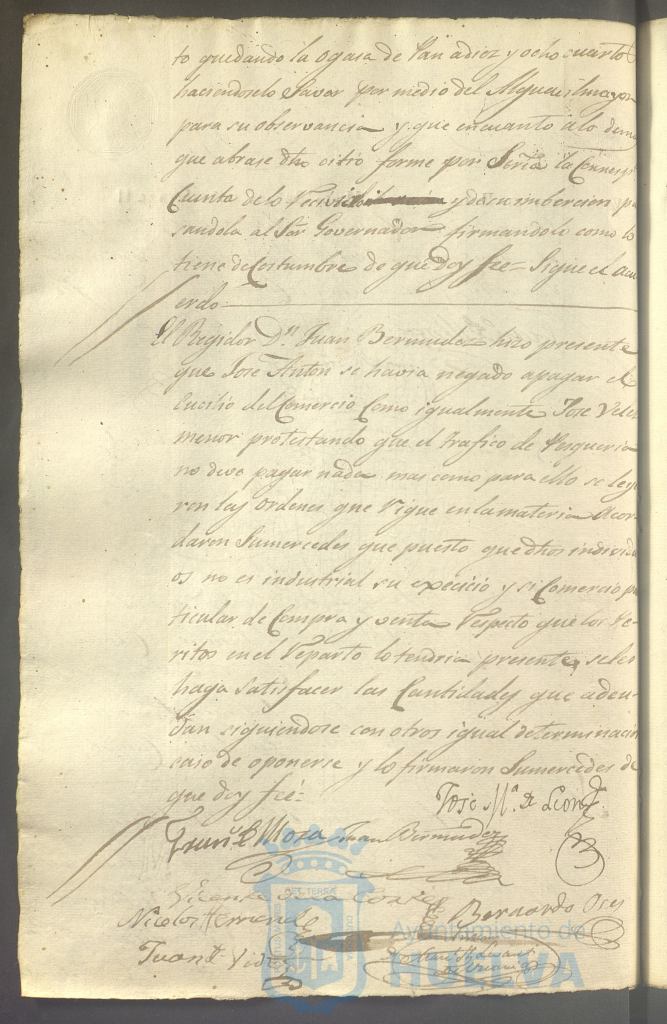 to quedando la ogasa de Pan adiez y ocho cuarto
haciendoselo Savar por medio del Alguacil mayor
para su observancia y que encuanto alo dema
que abrase dho citio forme por Seria la Corresp
Cuenta de lo Recivido y de su imbercion pa
sandola al Sor. Governador firmandolo como lo
tiene de Costumbre de que doy fee = Sigue el acu
erdo
El Regidor Dn. Juan Bermudez hizo presente
que Jose Anton se havia negado apagar el
del Comercio Como igualmente Jose Velez
menor protestando que el trafico de Pesqueria
no deve pagar nada mas como para ello se leye
ron las ordenes que Rigue en la materia Acor
daron Sumercedes que puesto que dhos individu
os no es industrial su exercicio y si Comercio par
ticular de Compra y venta Respecto que los Pe-
ritos en el Reparto lo tendria presente, se les
haga Satisfacer las Cantidades que adeu-
dan siguiendose con otros igual determinacion
caso de oponerse y lo firmaron Sumercedes de
que doy fee =
Jose Ma. de Leon
Franco. de Mora Juan Bermudez
Vicente de la Corte
Nicolas Hernandez Bernardo
Juan
AET TERRA
Ayuntamiento de
HUELVA